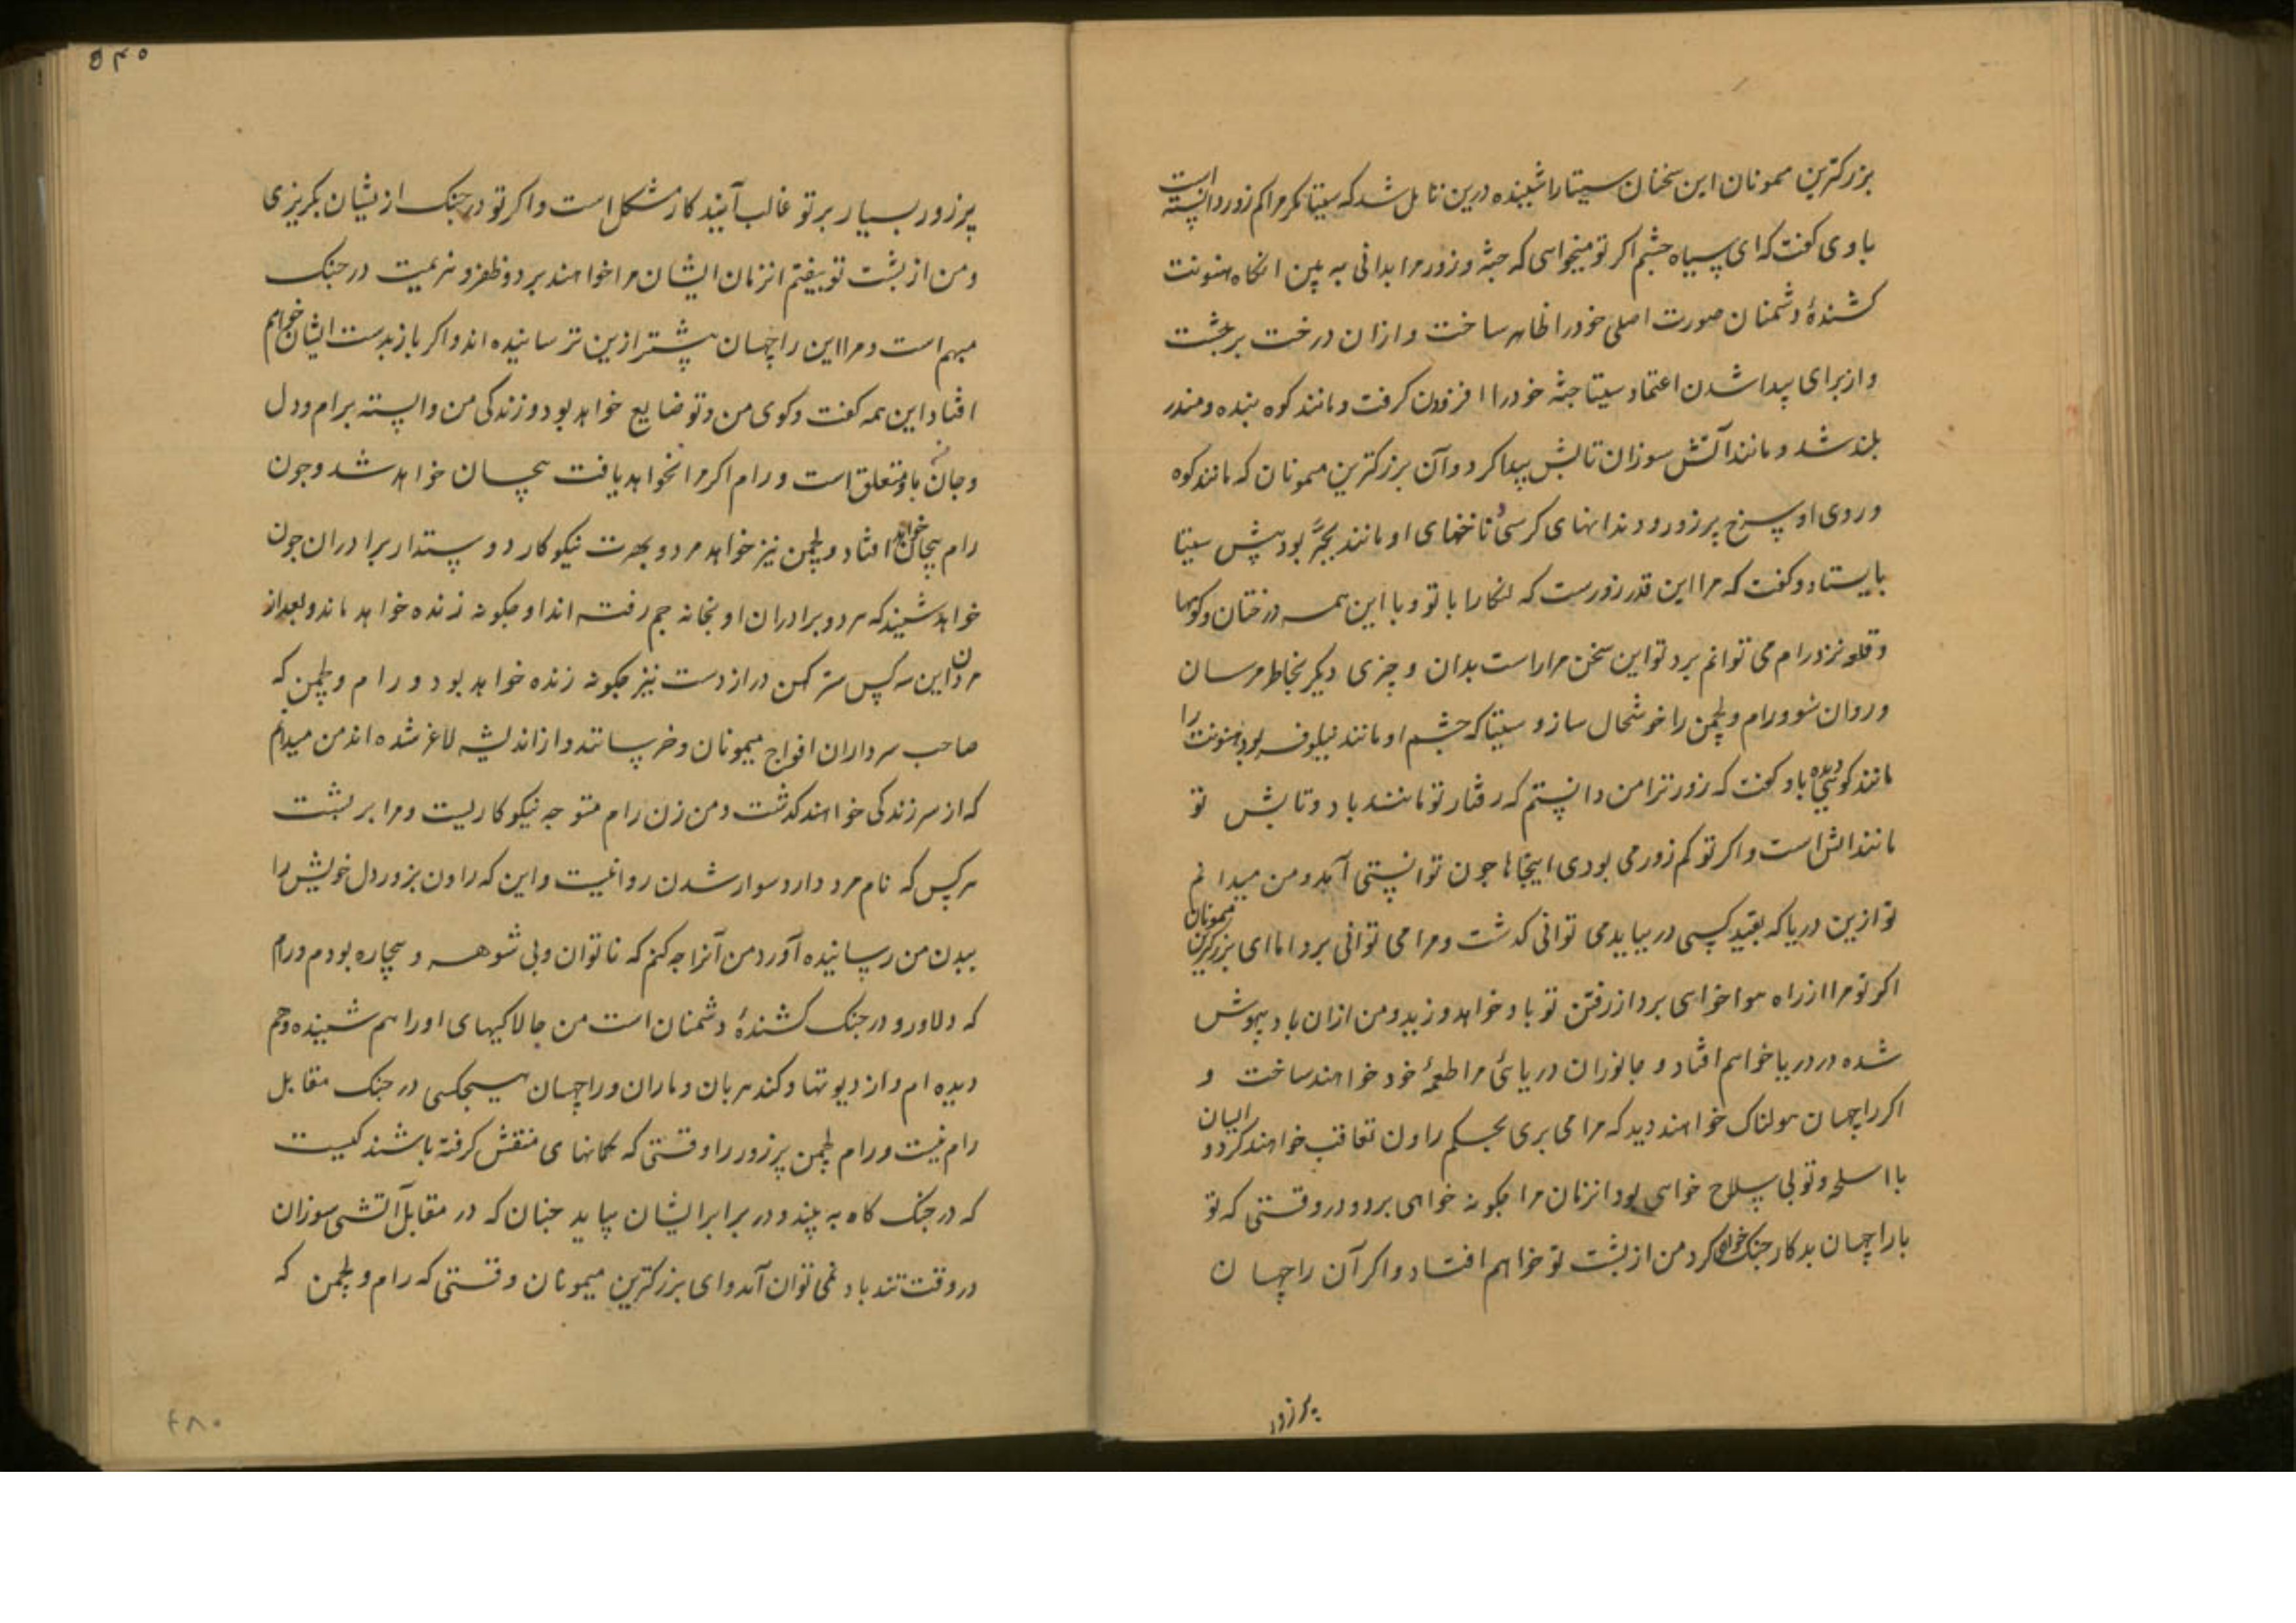 بزرکترین میمونان این سخنان سیتا را شنیده درین تامل شد که سیتا مکر مرا کم زور دانسته است
با وی کفت که ای سیاه چشم اکر تو میخواهی که جثه و زور مرا بدانی به بین انکاه هنونت
کشندۀ دشمنان صورت اصلی خود را ظاهر ساخت و ازان درخت برجست
و از برای پیدا شدن اعتماد سیتا جثه خود را افزودن کرفت و مانند کوه بنده و مندر
بلند شد و مانند آتش سوزان تابش پیدا کرد و آن بزرکترین میمونان که مانند کوه
و روی او سرخ پر زور و دندانهای کرسی و ناخنهای او مانند بجر بود پیش سیتا
بایستاد و کفت که مرا این قدر زورست که لنکا را با تو و با این همه درختان و کوهها
و قلعه نزد رام می توانم برد تو این سخن مرا راست بدان و چیزی دیکر بخاطر مرسان
و روان شو و رام و لچمن را خوشحال ساز و سیتا که چشم او مانند نیلوفر بود هنونت را
مانند کوهی دیده باو کفت که زور ترا من دانستم که رفتار تو مانند باد و تابش تو
مانند اتش است و اکر تو کم زور می بودی اینجاها چون توانستی آمد و من میدانم
تو ازین دریا که بقید کسی در نیاید می توانی کذشت و مرا می توانی برد اما ای بزرکترین میمونان
اکر تو مرا از راه هوا خواهی برد از رفتن تو باد خواهد وزید و من ازان باد بیهوش
شده در دریا خواهم افتاد و جانوران دریائی مرا طعمۀ خود خواهند ساخت و
اکر راچهسان هولناک خواهند دید که مرا می بری بحکم راون تعاقب خواهند کرد و ایشان
با اسلحه و تو بی سلاح خواهی بود انزمان مرا چکونه خواهی برد و در وقتی که تو
با راچهسان بدکار جنک خواهی کرد من از پشت تو خواهم افتاد و اکر آن راچهسان
پر زور
۵۴۰
پر زور بسیار بر تو غالب آیند کار مشکل است و اکر تو در جنک از یشان بکریزی
و من از پشت تو بیفتم انزمان ایشان مرا خواهند برد و ظفر و هزیمت در جنک
مبهم است و مرا این راچهسان پیشتر ازین ترسانیده اند و اکر باز بدست ایشان خواهم
افتاد این همه کفت و کوی من و تو ضایع خواهد بود و زندکی من وابسته برام و دل
و جان من باو متعلق است و رام اکر مرا نخواهد یافت بیجان خواهد شد و چون
رام بیجان خواهد افتاد و لچمن نیز خواهد مرد و بهرت نیکوکار دوستدار برادران چون
خواهد شنید که هر دو برادران او بخانه جم رفته اند او چکونه زنده خواهد ماند و بعد از
مردن این سه کس سترکهن دراز دست نیز چکونه زنده خواهد بود و رام و لچمن که
صاحب سرداران افواج میمونان و خرسانند و از اندیشه لاغر شده اند من میدانم
که از سر زندکی خواهند کذشت و من زن رام متوجه نیکوکاریست و مرا بر پشت
هر کس که نام مرد دارد سوار شدن روا نیست و این که راون بزور دل خویش را
ببدن من رسانیده آورد من آنرا چه کنم که ناتوان و بی شوهر و بیچاره بودم و رام
که دلاور و در جنک کشندۀ دشمنان است من چالاکیهای او را هم شنیده و هم
دیده ام و از دیوتها و کندهربان و ماران و راچهسان هیچکسی در جنک مقابل
رام نیست و رام لچمن پر زور را وقتی که کمانهای منقش کرفته باشند کیست
که در جنک کاه به بیند و در برابر ایشان بیاید چنان که در مقابل آتشی سوزان
در وقت تندباد نمی توان آمد و ای بزرکترین میمونان وقتی که رام و لچمن که
۴۸۰